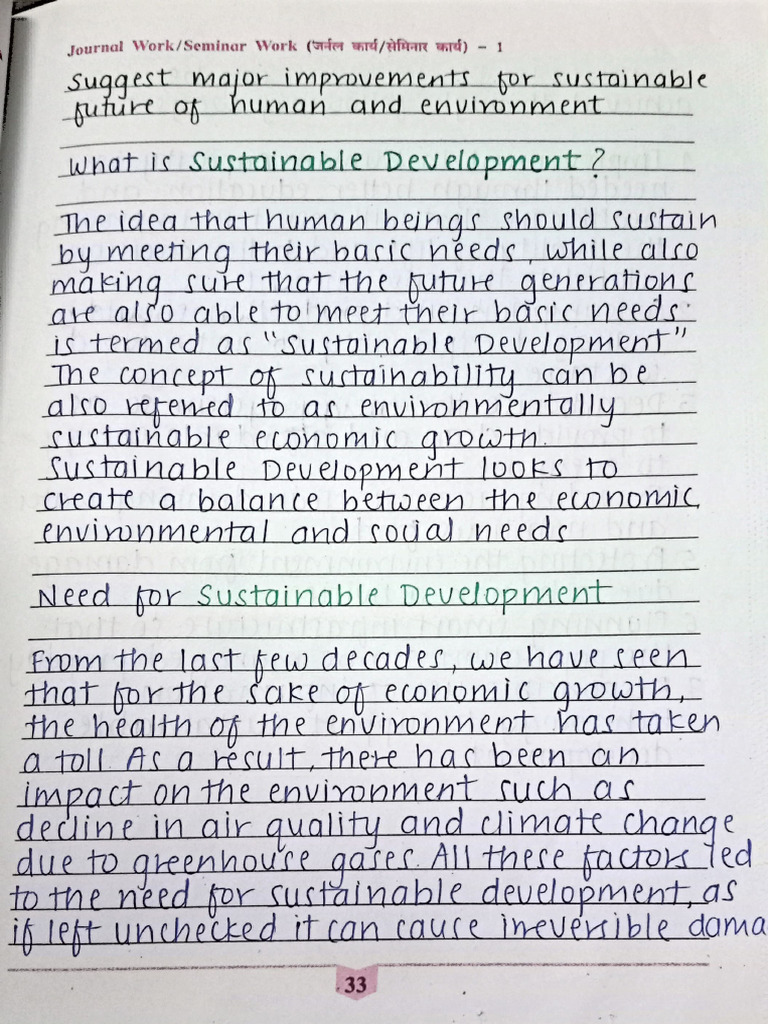 Journal Work/Seminar Work (जर्नल कार्य/सेमिनार कार्य) – 1
Suggest major improvements for sustainable
future of human and environment
What is Sustainable Development?
The idea that human beings should sustain
by meeting their basic needs, while also
making sure that the future generations
are also able to meet their basic needs
is termed as "Sustainable Development"
The concept of sustainability can be
also referred to as environmentally
sustainable economic growth.
Sustainable Development looks to
create a balance between the economic,
environmental and social needs
Need for Sustainable Development
From the last few decades, we have seen
that for the sake of economic growth,
the health of the environment has taken
a toll. As a result, there has been an
impact on the environment such as
decline in air quality and climate change
due to greenhouse gases. All these factors led
to the need for sustainable development, as
if left unchecked it can cause ireversible dama
33